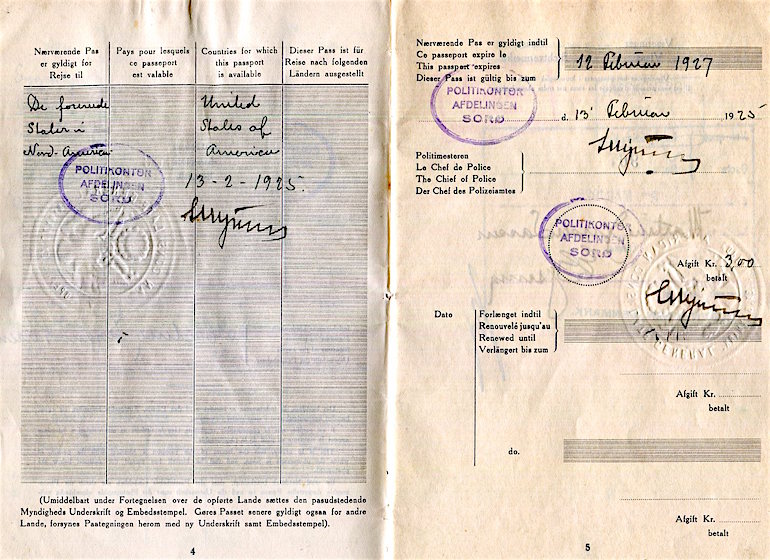 Nærværende Pas
er gyldigt for
Rejse til
Pays pour lesquels
ce passeport
est valable
Countries for which
this passport
is available
Dieser Pass ist für
Reise nach folgenden
Ländern ausgestellt
De forenede
Stater i
Nord-Amerika
United
States of
America
POLITIKONTOR
AFDELINGEN
SORØ
13-2-1925.
(Umiddelbart under Fortegnelsen over de opførte Lande sættes den pasudstedende
Myndigheds Underskrift og Embedsstempel. Gøres Passet senere gyldigt ogsaa for andre
Lande, forsynes Paategningen herom med ny Underskrift samt Embedsstempel).
4
Nærværende Pas er gyldigt indtil
Ce passeport expire le
This passport expires
Dieser Pass ist gültig bis zum
12 Februar 1927
POLITIKONTOR
AFDELINGEN
SORØ
d. 13' Februar 1925
Politimesteren
Le Chef de Police
The Chief of Police
Der Chef des Polizeiamtes
POLITIKONTOR
AFDELINGEN
SORØ
Afgift Kr. 3,00
betalt
Dato
Forlænget indtil
Renouvelé jusqu'au
Renewed until
Verlängert bis zum
Afgift Kr.
betalt
do.
Afgift Kr.
betalt
5